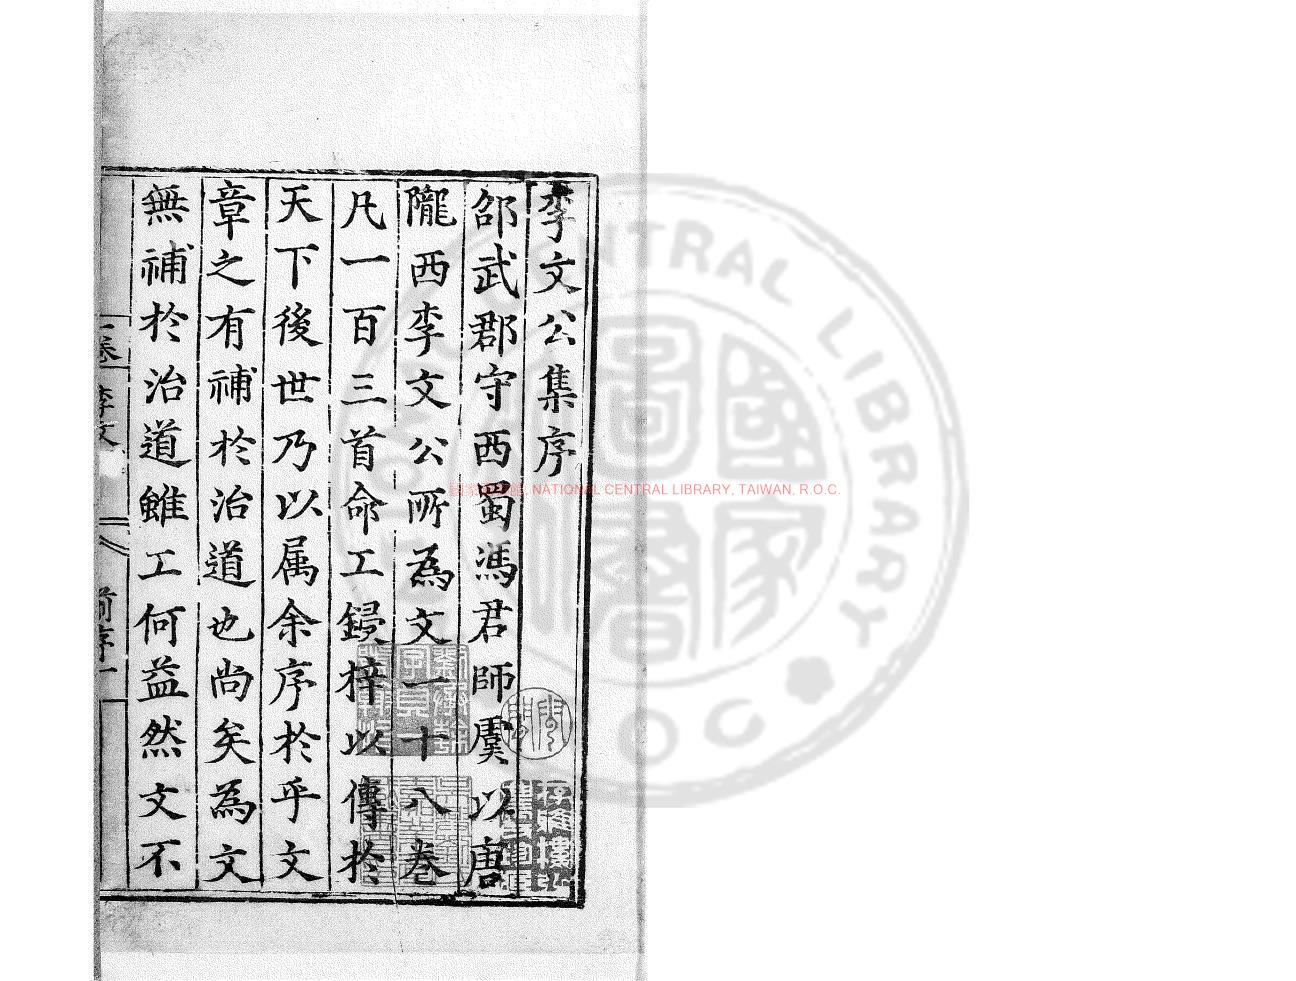 李文公集序
邵武郡守西蜀馮君師虞以唐
隴西李文公所為文一十八卷
凡一百三首命工鋟梓以傳於
天下後世乃以属余序於乎文
章之有補於治道也尚矣為文
無補於治道雖工何益然文不
李文
前序一
NATIONAL CENTRAL LIBRARY, TAIWAN, R.O.C.
CENTRAL LIBRARY
國家圖書館